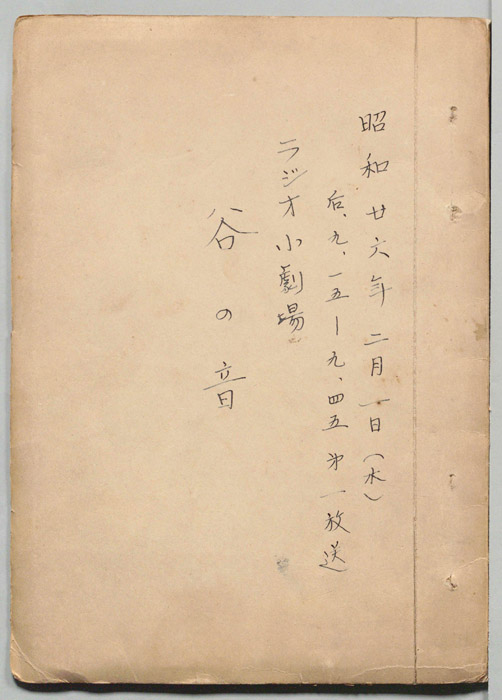 昭和廿六年二月一日(水)
后、九、一五ー九、四五 㐧一放送
ラジオ小劇場
谷の音